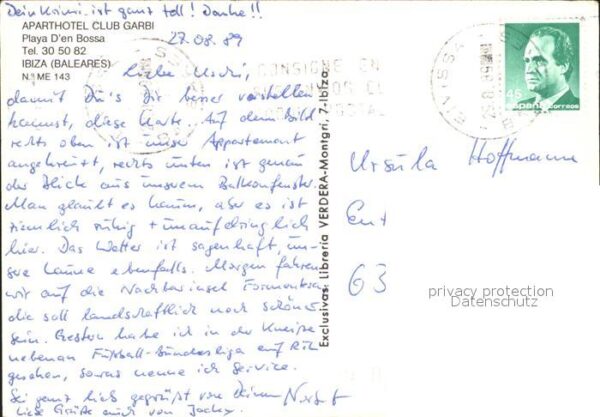 Dein Krimi ist ganz toll! Danke!!
APARTHOTEL CLUB GARBI
Playa D'en Bossa
Tel. 30 50 82
IBIZA (BALEARES)
N.º ME 143
27.08.89
Liebe Uschi,
damit Du's Dir besser vorstellen
kannst, diese Karte. Auf dem Bild
rechts oben ist unser Appartement
angekreuzt, rechts unten ist genau
der Blick aus unserem Balkonfenster.
Man glaubt es kaum, aber es ist
ziemlich ruhig + unaufdringlich
hier. Das Wetter ist sagenhaft, un-
sere Laune ebenfalls. Morgen fahren
wir auf die Nachbarinsel Formentera
die soll landschaftlich noch schöner
sein. Gestern habe ich in der Kneipe
nebenan Fußball-Bundesliga auf
gesehen, sowas nenne ich Service.
Sei ganz lieb gegrüßt von Deinem Norbert
Liebe Grüße auch von Jacky.
Exclusivas: librería VERDERA-Montgrí, 7-Ibiza
CONSIGNE EN
POSTAL
EIVISSA
45
España correos
Ursula Hoffmann
63
privacy protection
Datenschutz